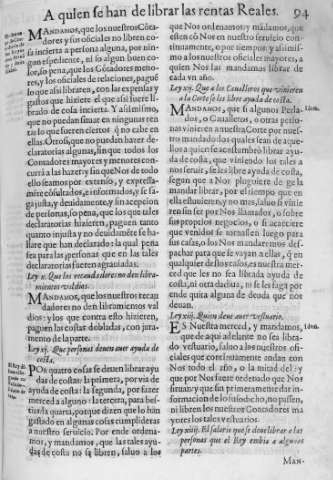 A quien se han de librar las rentas Reales. 94
MANDAMOS, que los nuestros Cõta-
dores y sus oficiales no libren co-
sa incierta a persona alguna, por nin-
gun expediente, ni so algun buen co-
lor, so pena, que los Cõtadores meno-
res, y los oficiales de relaciones, paguẽ
lo que assi libraren, con las expensas y
gastos que hiziere el que assi fuere li-
brado de cosa incierta. Y assimismo,
que no puedan situar en ningunas ren
tas lo que fueren ciertos q̃ no cabe en
ellas. Otrosi, que no puedan hazer de-
claratorias algunas, sin que todos los
Contadores mayores y menores con-
curran a las hazer y sin que Nos de todo
ello seamos por extenso, y expressa-
mẽte cõsultados, e informados, y se fa-
ga justa, y deuidamente, y sin acepcion
de personas, so pena, que los que tales
declaratorias hizieren, paguen tanto
quanto injusta y no deuidamẽte se ha-
llare que han declarado: la qual pena
sea para las personas que en las tales
declaratorias fueren agrauiadas.
Ley x. Que los recaudadores no den libra-
mientos valdios.
MANDAMOS, que los nuestros recau
dadores no den libramientos val
dios: y los que contra esto hizieren,
paguen las costas dobladas, con jura-
mento de la parte.
Ley xj. Que personas deuen auer ayuda de
costa.
POR quatro cosas se deuen librar ayu
das de costa: la primera, por via de
ayuda de costa: la segunda, por fazer
merced a alguno: la tercera, para bes-
tias: la quarta, porque dizen que lo han
gastado en algunas cosas cumplideras
a nuestro seruicio. Por ende ordena-
mos, y mandamos, que las tales ayu-
das de costa no se libren, saluo a los
que Nos ordenamos, y mãdamos, que
esten cõ Nos en nuestro seruicio con-
tinuamente, o por tiempos: y assimis-
mo a los nuestros oficiales mayores, a
quien Nos las mandamos librar de
cada vn año.
Ley xij. Que a los Caualleros que vinieren
a la Corte se les libre ayuda de costa.
MANDAMOS, que si algunos Perla-
dos, o Caualleros, o otras personas
vinieren a nuestra Corte por nues-
tro mandado: los quales sean de aque-
llos a quien se acostumbrò librar ayu
da de costa, que viniendo los tales a
nos seruir, se les libre ayuda de costa,
segun que a Nos pluguiere de ge la
mandar librar, por el tiempo que en
ella estuuieren, y no mas, saluo si vinie
ren sin ser por Nos llamados, o sobre
sus propios negocios, o si acaeciere
que venidos se tornassen luego para
sus casas, o los Nos mandaremos des-
pachar para que se vayan a ellas, q̃ en
qualquier destos casos, es nuestra mer
ced que les no sea librada ayuda de
costa, ni otra dadiua, ni se les faga por
ende quita alguna de deuda que nos
deuan.
Ley xiij. Quien deue auer vestuario.
ES Nuestra merced, y mandamos,
que de aqui adelante no sea libra-
do vestuario, saluo a los nuestros ofi-
ciales que continuamente andan con
Nos todo el año, o la mitad del: y
que por Nos fuere ordenado que Nos
siruan: y que sin primeramente dar in-
formacion de lo susodicho, no passen,
ni libren los nuestros Contadores ma
yores los tales vestuarios.
Ley xiiij. El salario que se deue librar a las
personas que el Rey embia a algunas
partes.
MAN-